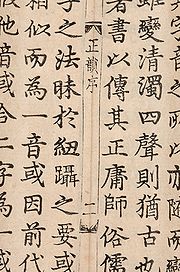 雖變清濁四聲則猶古也
著書以傳其正庸師俗儒
正韻序 二
字之法昧於紐躡之要或
相似而為一音或因前代
他音或合二字為一或